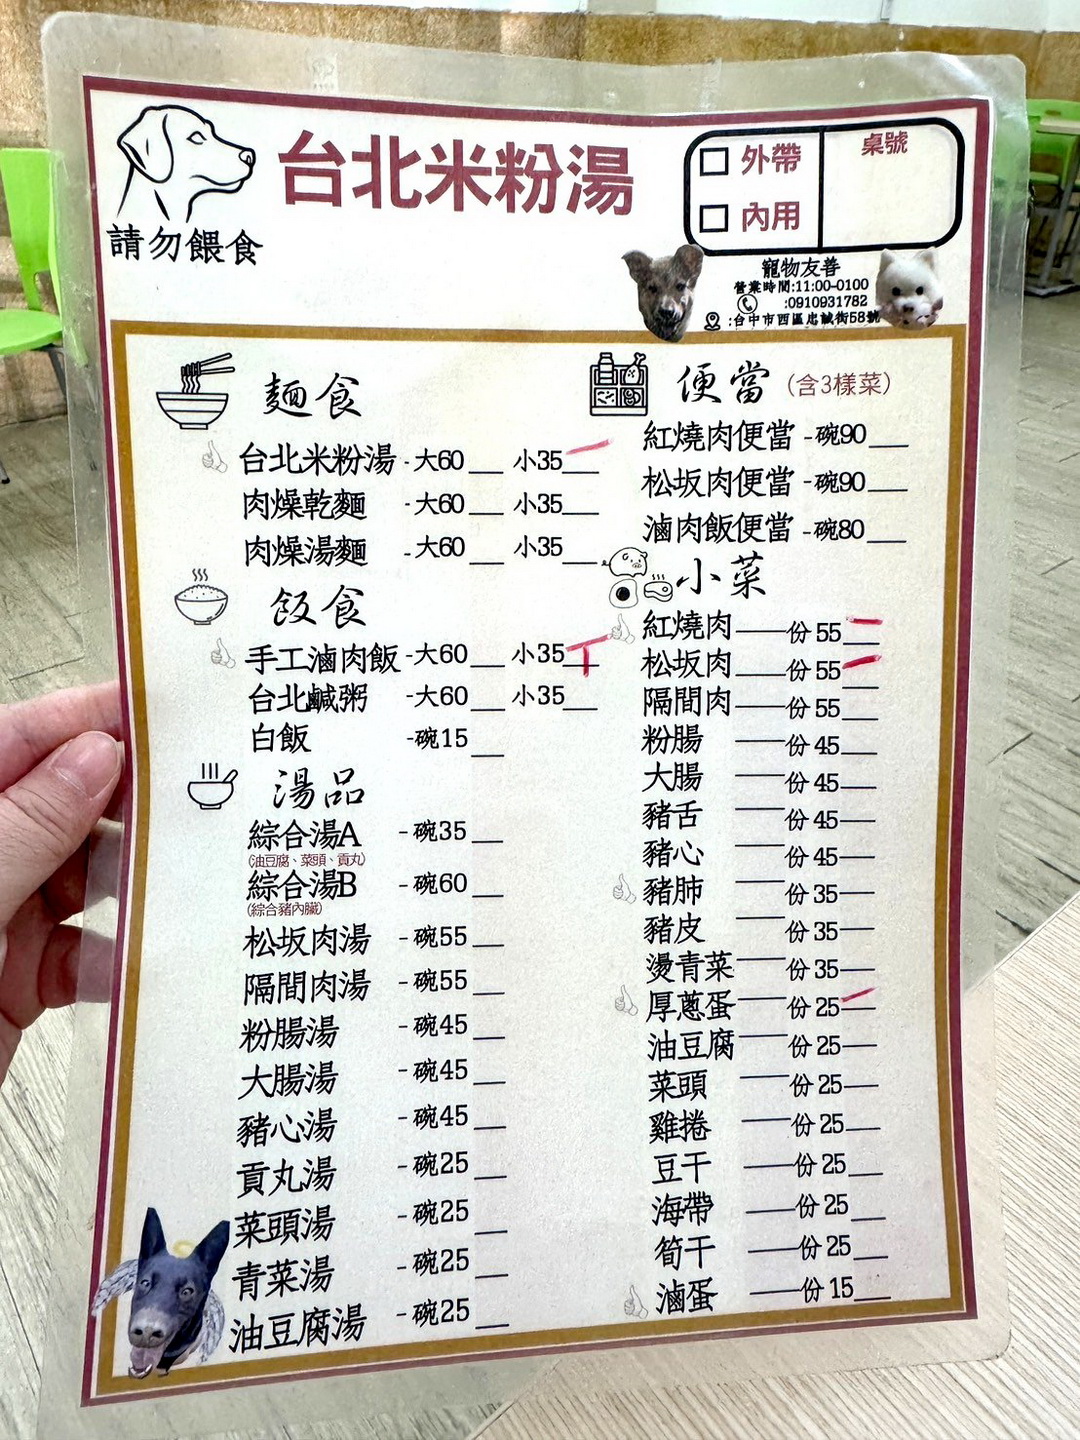 台北米粉湯
請勿餵食
外帶
內用
桌號
寵物友善
營業時間:11:00-0100
:0910931782
:台中市西區忠誠街58號
麵食
台北米粉湯-大60 小35
肉燥乾麵 -大60 小35
肉燥湯麵 -大60 小35
飯食
手工滷肉飯-大60 小35
台北鹹粥 -大60 小35
白飯 -碗15
湯品
綜合湯A -碗35
(油豆腐、菜頭、貢丸)
綜合湯B -碗60
(綜合豬內臟)
松坂肉湯 -碗55
隔間肉湯 -碗55
粉腸湯 -碗45
大腸湯 -碗45
豬心湯 -碗45
貢丸湯 -碗25
菜頭湯 -碗25
青菜湯 -碗25
油豆腐湯 -碗25
便當(含3樣菜)
紅燒肉便當-碗90
松坂肉便當-碗90
滷肉飯便當-碗80
小菜
紅燒肉——份55
松坂肉——份55
隔間肉——份55
粉腸——份45
大腸——份45
豬舌——份45
豬心——份45
豬肺——份35
豬皮——份35
燙青菜——份35
厚蔥蛋——份25
油豆腐——份25
菜頭——份25
雞捲——份25
豆干——份25
海帶——份25
筍干——份25
滷蛋——份15